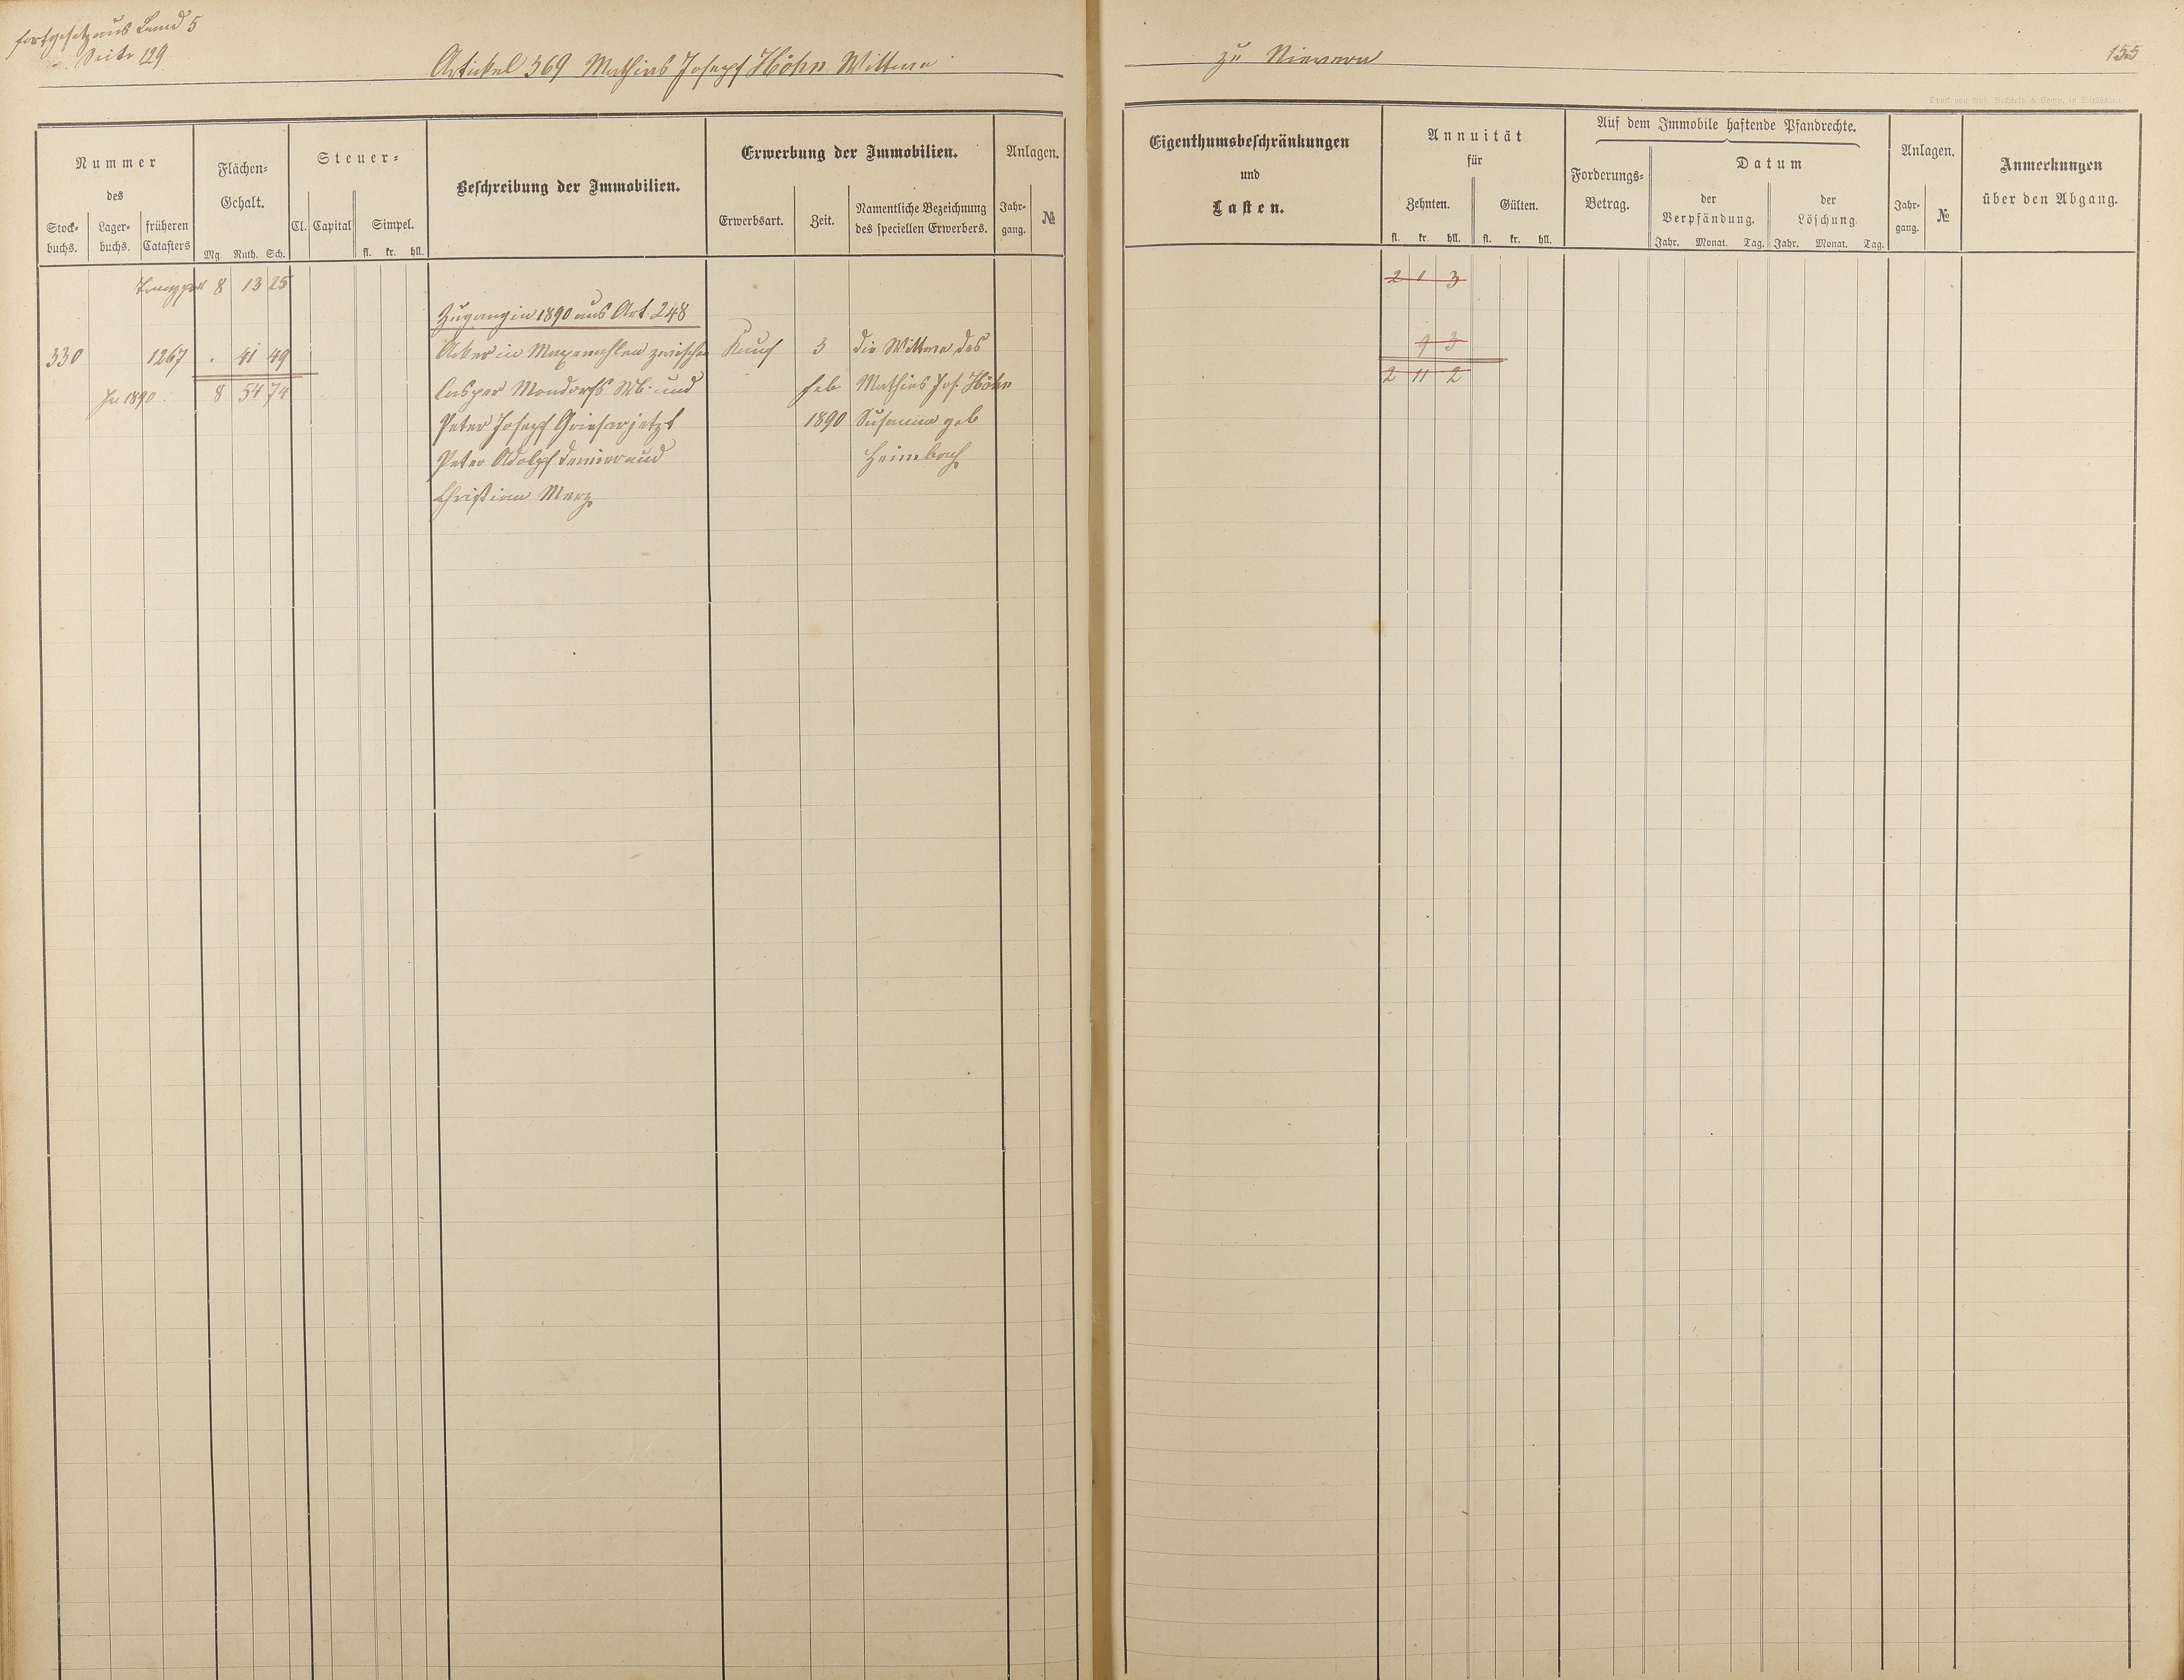 fortgesetzt aus Band 5
Seite 129
Artikel 369 Mathias Joseph Höhn Wittwe
zu Nievern
155
Druck von Rud. Bechtold & Comp. in Wiesbaden.
Nummer
des
Stock-
buchs.
Lager-
buchs.
früheren
Catasters
Flächen-
Gehalt.
Mg. Ruth. Sch.
Steuer-
Cl. Capital Simpel.
fl. kr. hll.
Beschreibung der Immobilien.
Erwerbung der Immobilien.
Erwerbsart. Zeit.
Namentliche Bezeichnung
des speciellen Erwerbers.
Anlagen.
Jahr-
gang.
№
Eigenthumsbeschränkungen
und
Lasten.
Annuität
für
Zehnten. Gülten.
fl. kr. hll. fl. kr. hll.
Auf dem Immobile haftende Pfandrechte.
Forderungs-
Betrag.
Datum
der
Verpfändung.
der
Löschung.
Jahr. Monat. Tag. Jahr. Monat. Tag.
Anlagen.
Jahr-
gang.
№
Anmerkungen
über den Abgang.
Transport 8 13 25 2 1 3
Zugang in 1890 aus Art. 248
330 1267 . 41 49 Acker in zwischen Kauf 3 die Wittwe des 9 3
In 1890. 8 54 74 Casper Mondorfs Wb. und Feb Mathias Jos. Höhn 2 11 2
Peter Joseph Griesar jetzt 1890 Susanna geb
Peter Adolph und Heimbach
Christian Merz